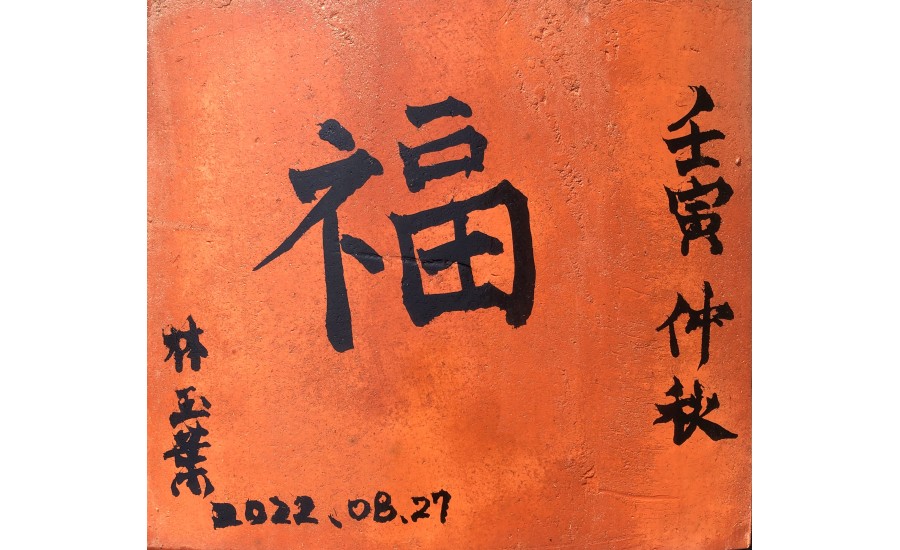 壬寅 仲秋
福
林玉葉
2022、08、27